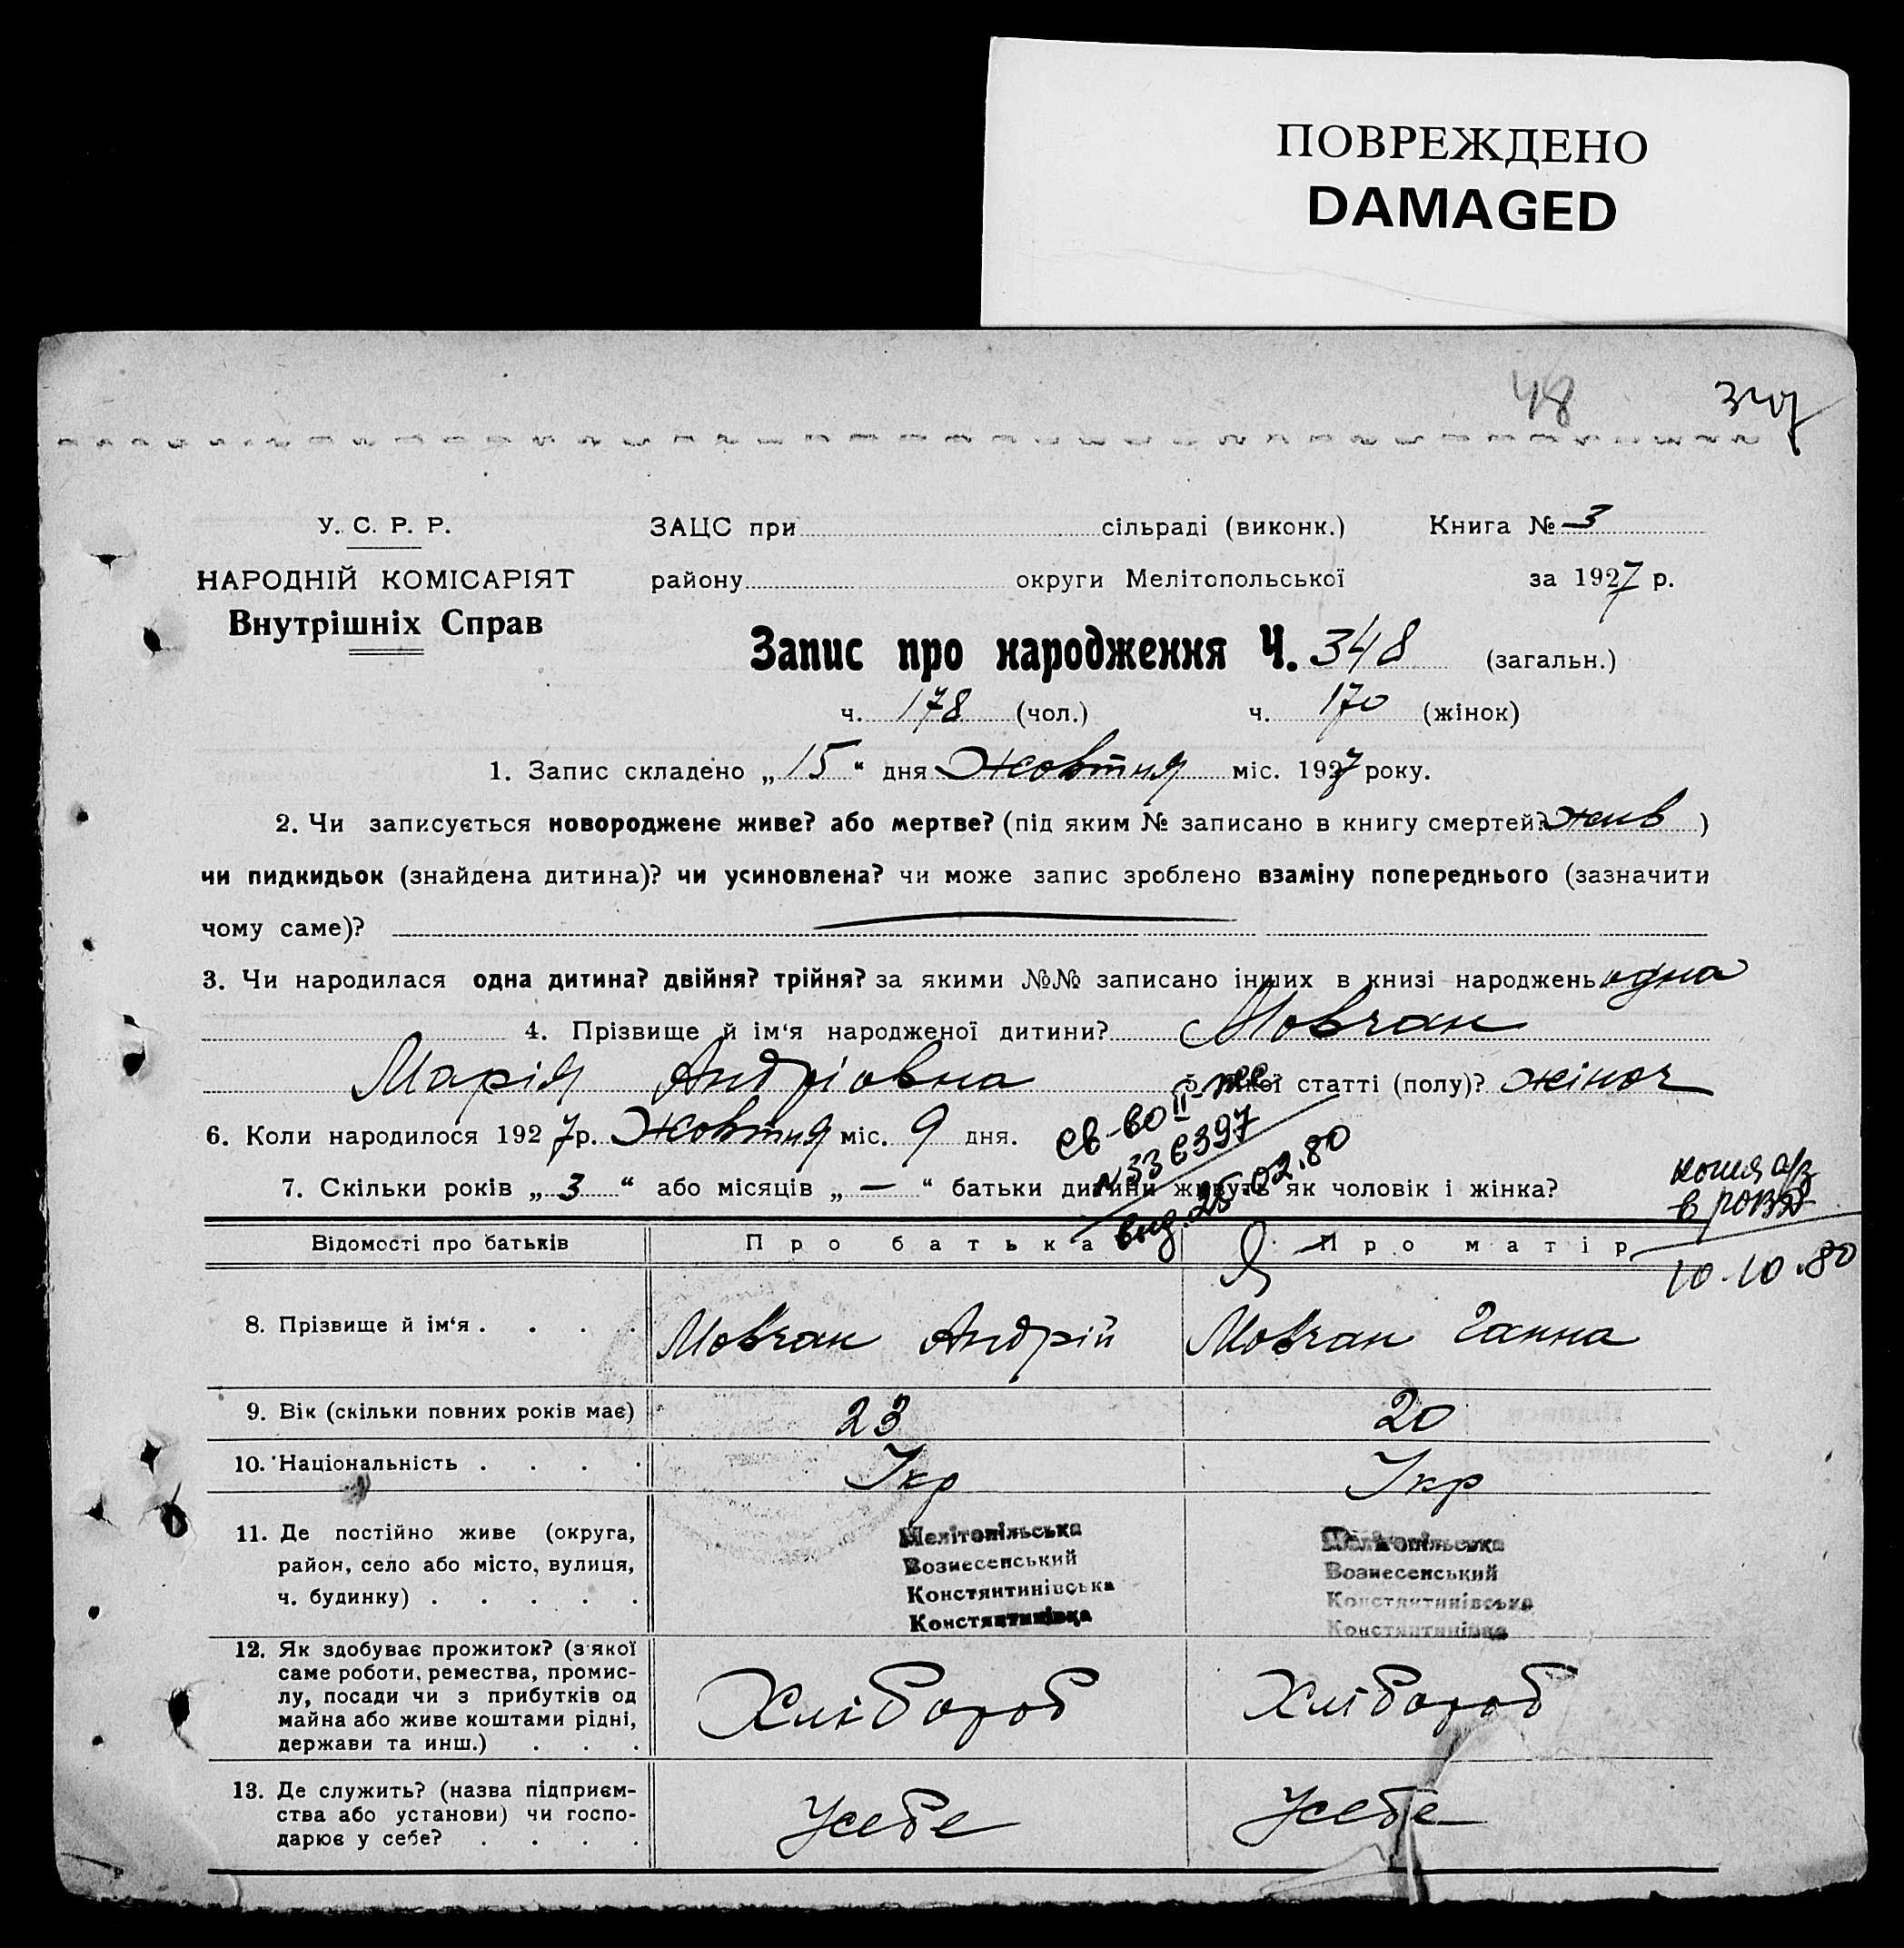 ПОВРЕЖДЕНО
DAMAGED
48
У. С. Р. Р.
НАРОДНІЙ КОМІСАРІЯТ
Внутрішніх Справ
ЗАЦС при сільраді (виконк.) Книга № 3
району округи Мелітопольської за 1927 р.
Запис про народження Ч. 348 (загальн.)
ч. 178 (чол.) ч. 170 (жінок)
1. Запис складено „15“ дня Жовтня міс. 1927 року.
2. Чи записується новороджене живе? або мертве? (під яким № записано в книгу смертей? жив)
чи пидкидьок (знайдена дитина)? чи усиновлена? чи може запис зроблено взаміну попереднього (зазначити
чому саме)? —
3. Чи народилася одна дитина? двійня? трійня? за якими №№ записано інших в книзі народжень одна
4. Прізвище й ім‘я народженої дитини? Мовчан
Марія Андріовна 5. Якої статті (полу)? жіноч
6. Коли народилося 1927 р. Жовтня міс. 9 дня.
св-во II-ЖС
№336397
вид. 25.02.80
7. Скільки років „3“ або місяців „—“ батьки дитини живуть як чоловік і жінка?
копія а/з
в
10.10.80
Відомості про батьків Про батька Про матір
8. Прізвище й ім‘я . . . . Мовчан Андрій Мовчан Ганна
9. Вік (скільки повних років має) 23 20
10. Національність . . . . Укр Укр
11. Де постійно живе (округа,
район, село або місто, вулиця,
ч. будинку) . . . . .
Мелітопільська Мелітопільська
Вознесенський Вознесенський
Констянтинівська Констянтинівська
Констянтинівка Констянтинівка
12. Як здобуває прожиток? (з якої
саме роботи, ремества, промис-
лу, посади чи з прибутків од
майна або живе коштами рідні,
держави та инш.) . . .
Хлібороб Хлібороб
13. Де служить? (назва підприєм-
ства або установи) чи госпо-
дарює у себе? . . . .
Усебе Усебе